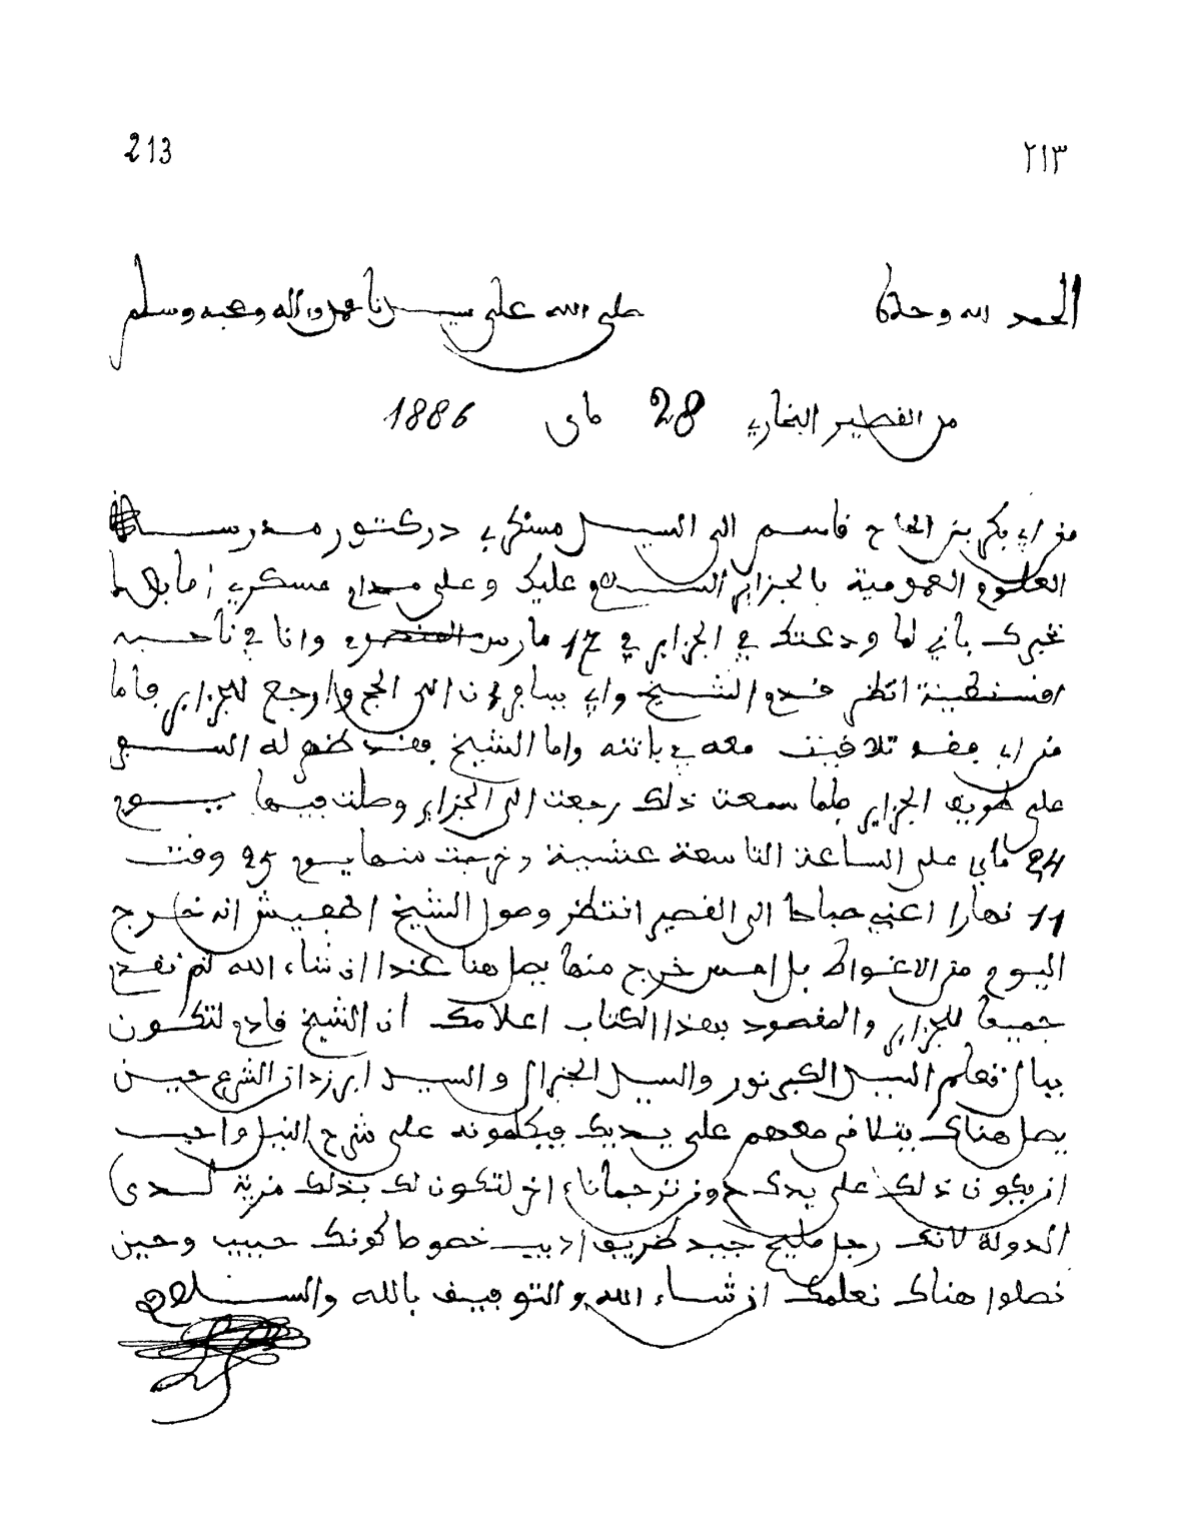 213 ٢١٣
الحمد لله وحده صلى الله على سيدنا محمد وآله وصحبه وسلم
من القصير البخاري 28 ماي 1886
من ابي بكر بن الحاج قاسم الى السيد مسكري دركتور مدرسة
العلوم العمومية بالجزاير السلام عليك وعلى مدام مسكري اما بعد
نخبرك بأني لما ودعتك في الجزاير في 17 مارس وانا في ناحية
اقسنطينة انظر قدوم الشيخ وابي يسافرون الى الحج وارجع للجزاير فأما
ابي فقد تلاقيت معه في باتنه واما الشيخ فقد ظهر له السفر
على طريق الجزاير فلما سمعت ذلك رجعت الى الجزاير وصلت فيها يوم
24 ماي على الساعة التاسعة عشية وخرجت منها يوم 25 وقت
11 نهارا اعني صباحا الى القصير انتظر وصول الشيخ اطفيش انه خارج
اليوم من الاغواط بل امس خرج منها يصل هنا غدا ان شاء الله ثم نقدم
جميعا للجزاير والمقصود بهذا الكتاب اعلامك أن الشيخ قادم لتكون
ببال نعلم السيد الكبرنور والسيد الجنرال والسيد ابر زدان الشرع حين
يصل هناك يتلاقى معهم على يديك فيكلمونه على شرح النيل واحب
ان يكون ذلك على يدك دون ترجمانا اخر لتكون لك بذلك مزية لدى
الدولة لانك رجل مليح جيد ظريف اديب خصوصا كونك حبيب وحين
نصلوا هناك نعلمك ان شاء الله والتوفيق بالله والسلام